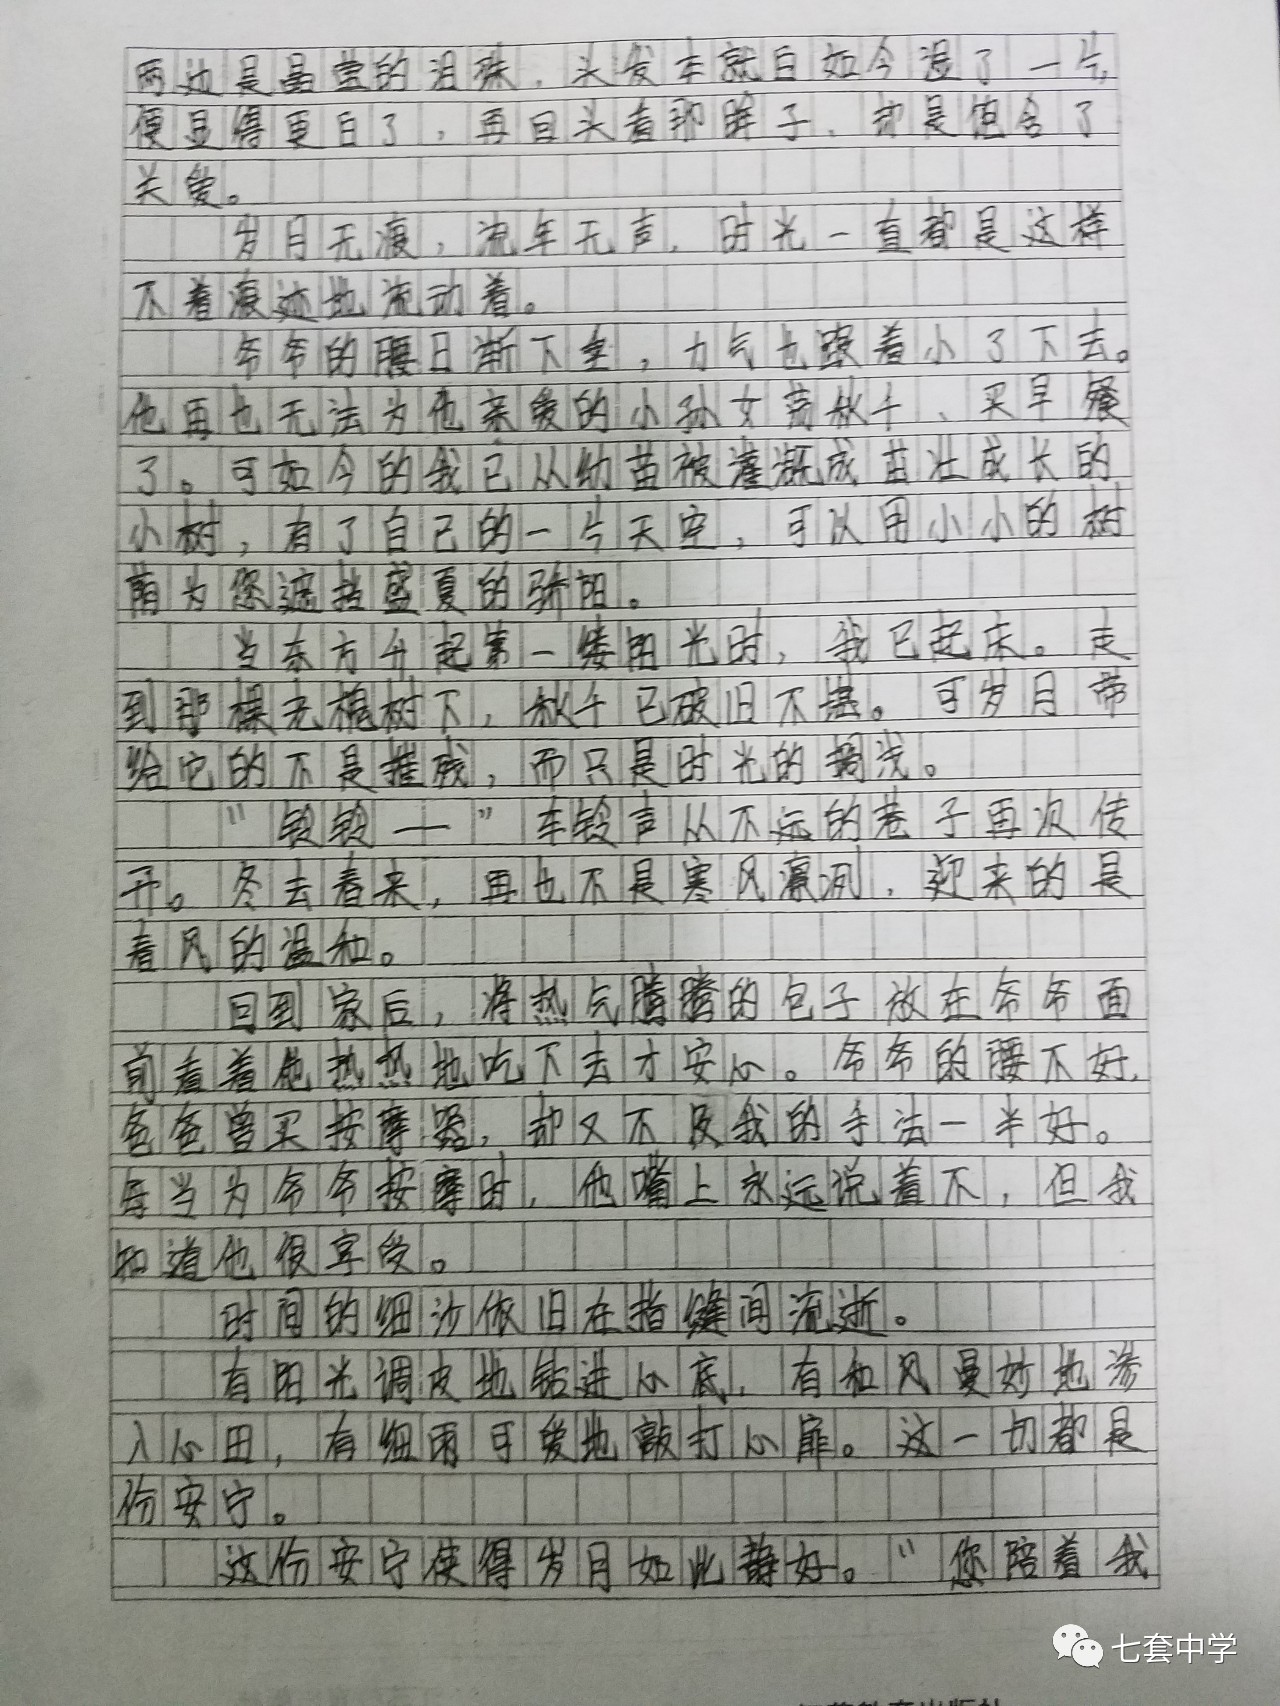 两边是晶莹的泪珠，头发本就白如今湿了一片，
便显得更白了，再回头看那眸子，却是饱含了
关爱。
岁月无痕，流年无声，时光一直都是这样
不着痕迹地流动着。
爷爷的腰日渐下垂，力气也跟着小了下去。
他再也无法为他亲爱的小孙女荡秋千、买早餐
了。可如今的我已从幼苗被灌溉成茁壮成长的
小树，有了自己的一片天空，可以用小小的树
荫为您遮挡盛夏的骄阳。
当东方升起第一缕阳光时，我已起床。走
到那棵老槐树下，秋千已破旧不堪。可岁月带
给它的不是摧残，而只是时光的搁浅。
“铃铃——”车铃声从不远的巷子再次传
开。冬去春来，再也不是寒风凛冽，迎来的是
春风的温和。
回到家后，将热气腾腾的包子放在爷爷面
前看着他热热地吃下去才安心。爷爷的腰不好，
爸爸曾买按摩器，却又不及我的手法一半好。
每当为爷爷按摩时，他嘴上永远说着不，但我
知道他很享受。
时间的细沙依旧在指缝间流逝。
有阳光调皮地钻进心底，有和风曼妙地渗
入心田，有细雨可爱地敲打心扉。这一切都是
份安宁。
这份安宁使得岁月如此静好。“您陪着我
七套中学